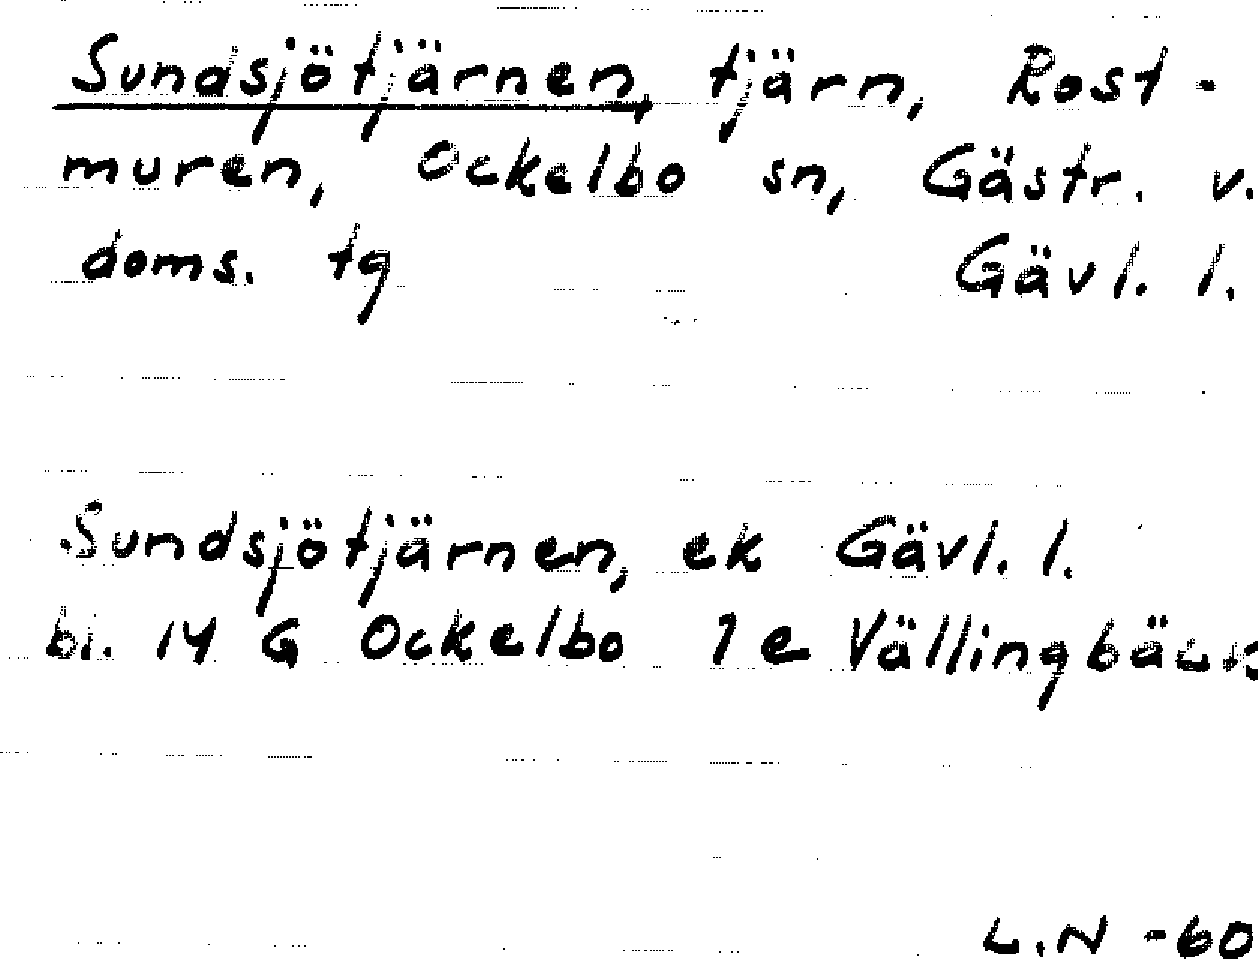 Sundsjötjärnen, tjärn, Rost-
muren, Ockelbo sn, Gästr. v.
doms. tg Gävl. l.
Sundsjötjärnen, ek Gävl. l.
bl. 14 G Ockelbo 1e
L.N -60